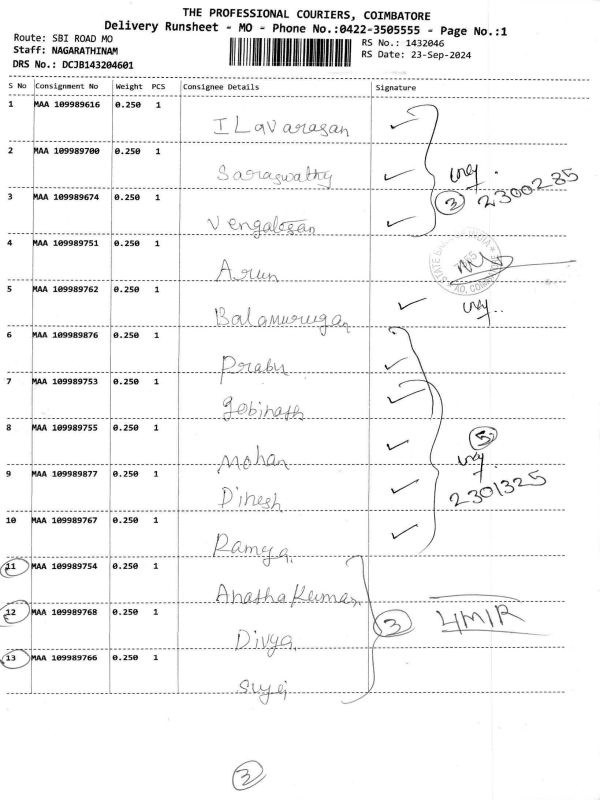 THE PROFESSIONAL COURIERS, COIMBATORE
Delivery Runsheet - MO - Phone No.:0422-3505555 - Page No.:1
Route: SBI ROAD MO
Staff: NAGARATHINAM
DRS No.: DCJB143204601
RS No.: 1432046
RS Date: 23-Sep-2024
S No Consignment No Weight PCS Consignee Details Signature
1 MAA 109989616 0.250 1
ILavarasan
2 MAA 109989700 0.250 1
Saraswathy
3 MAA 109989674 0.250 1
3 2300285
Vengalesan
4 MAA 109989751 0.250 1
Arun
5 MAA 109989762 0.250 1
Balamurugan
6 MAA 109989876 0.250 1
Prabu
7 MAA 109989753 0.250 1
Gobinath
8 MAA 109989755 0.250 1
5
Mohan
9 MAA 109989877 0.250 1
2301325
Dinesh
10 MAA 109989767 0.250 1
Ramya
11 MAA 109989754 0.250 1
Anatha Kumar
12 MAA 109989768 0.250 1
3
Divya
13 MAA 109989766 0.250 1
3